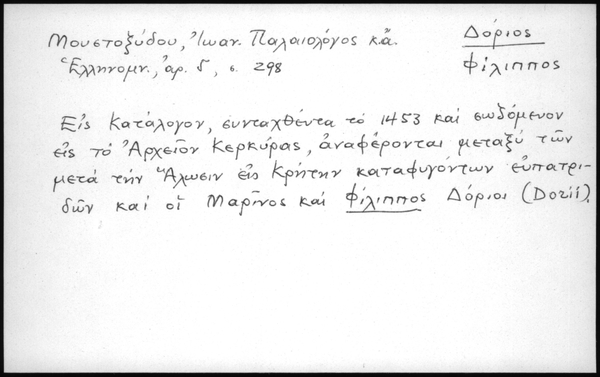 Μουστοξύδου, Ἰωαν. Παλαιολόγος κ.ἄ.
Ἑλληνομν., ἀρ. 5, σ. 298
Δόριος
Φίλιππος
Εἰς Κατάλογον, συνταχθέντα τὸ 1453 καὶ σωζόμενον
εἰς τὸ Ἀρχεῖον Κερκύρας, ἀναφέρονται μεταξὺ τῶν
μετά τὴν Ἅλωσιν εἰς Κρήτην καταφυγόντων εὐπατρι-
δῶν καὶ οἱ Μαρῖνος καὶ Φίλιππος Δόριοι (Dorii).